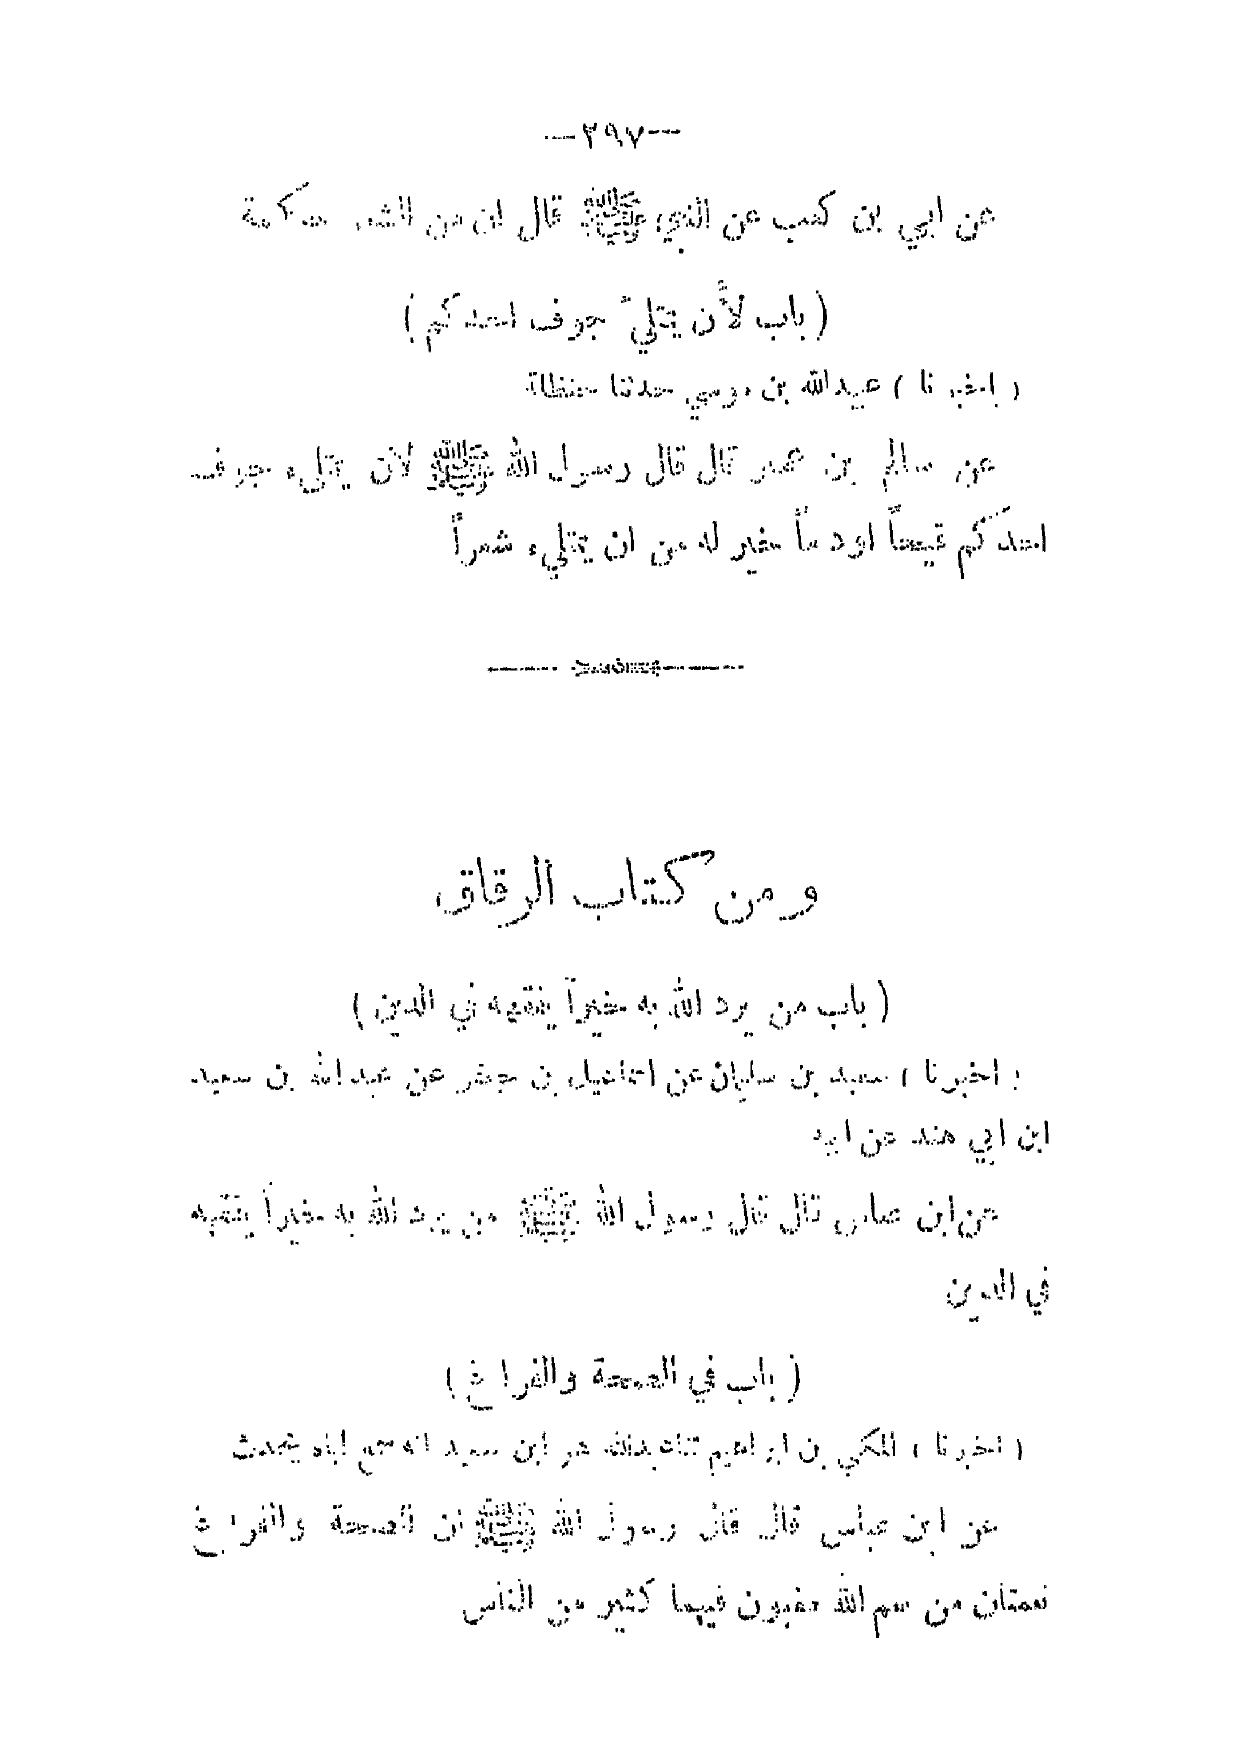 —٢٩٧—
عن ابي بن كعب عن النبي ﷺ قال ان من الشعر حكمة
( باب لأن يمتلئ جوف احدكم )
( اخبرنا ) عبيدالله بن موسي حدثنا حنظلة
عن سالم بن عمر قال قال رسول الله ﷺ لان يمتليء جوف
احدكم قيحاً او دماً خير له من ان يمتليء شعراً
ومن كتاب الرقاق
( باب من يرد الله به خيراً يفقهه في الدين )
( اخبرنا ) سعيد بن سليمان عن اسماعيل بن جعفر عن عبدالله بن سعيد
ابن ابي هند عن ابيه
عن ابن عباس قال قال رسول الله ﷺ من يرد الله به خيراً يفقهه
في الدين
( باب في الصحة والفراغ )
( اخبرنا ) المكي بن ابراهيم ثنا عبدالله هو ابن سعيد انه سمع اباه يحدث
عن ابن عباس قال قال رسول الله ﷺ ان الصحة والفراغ
نعمتان من نعم الله مغبون فيهما كثير من الناس